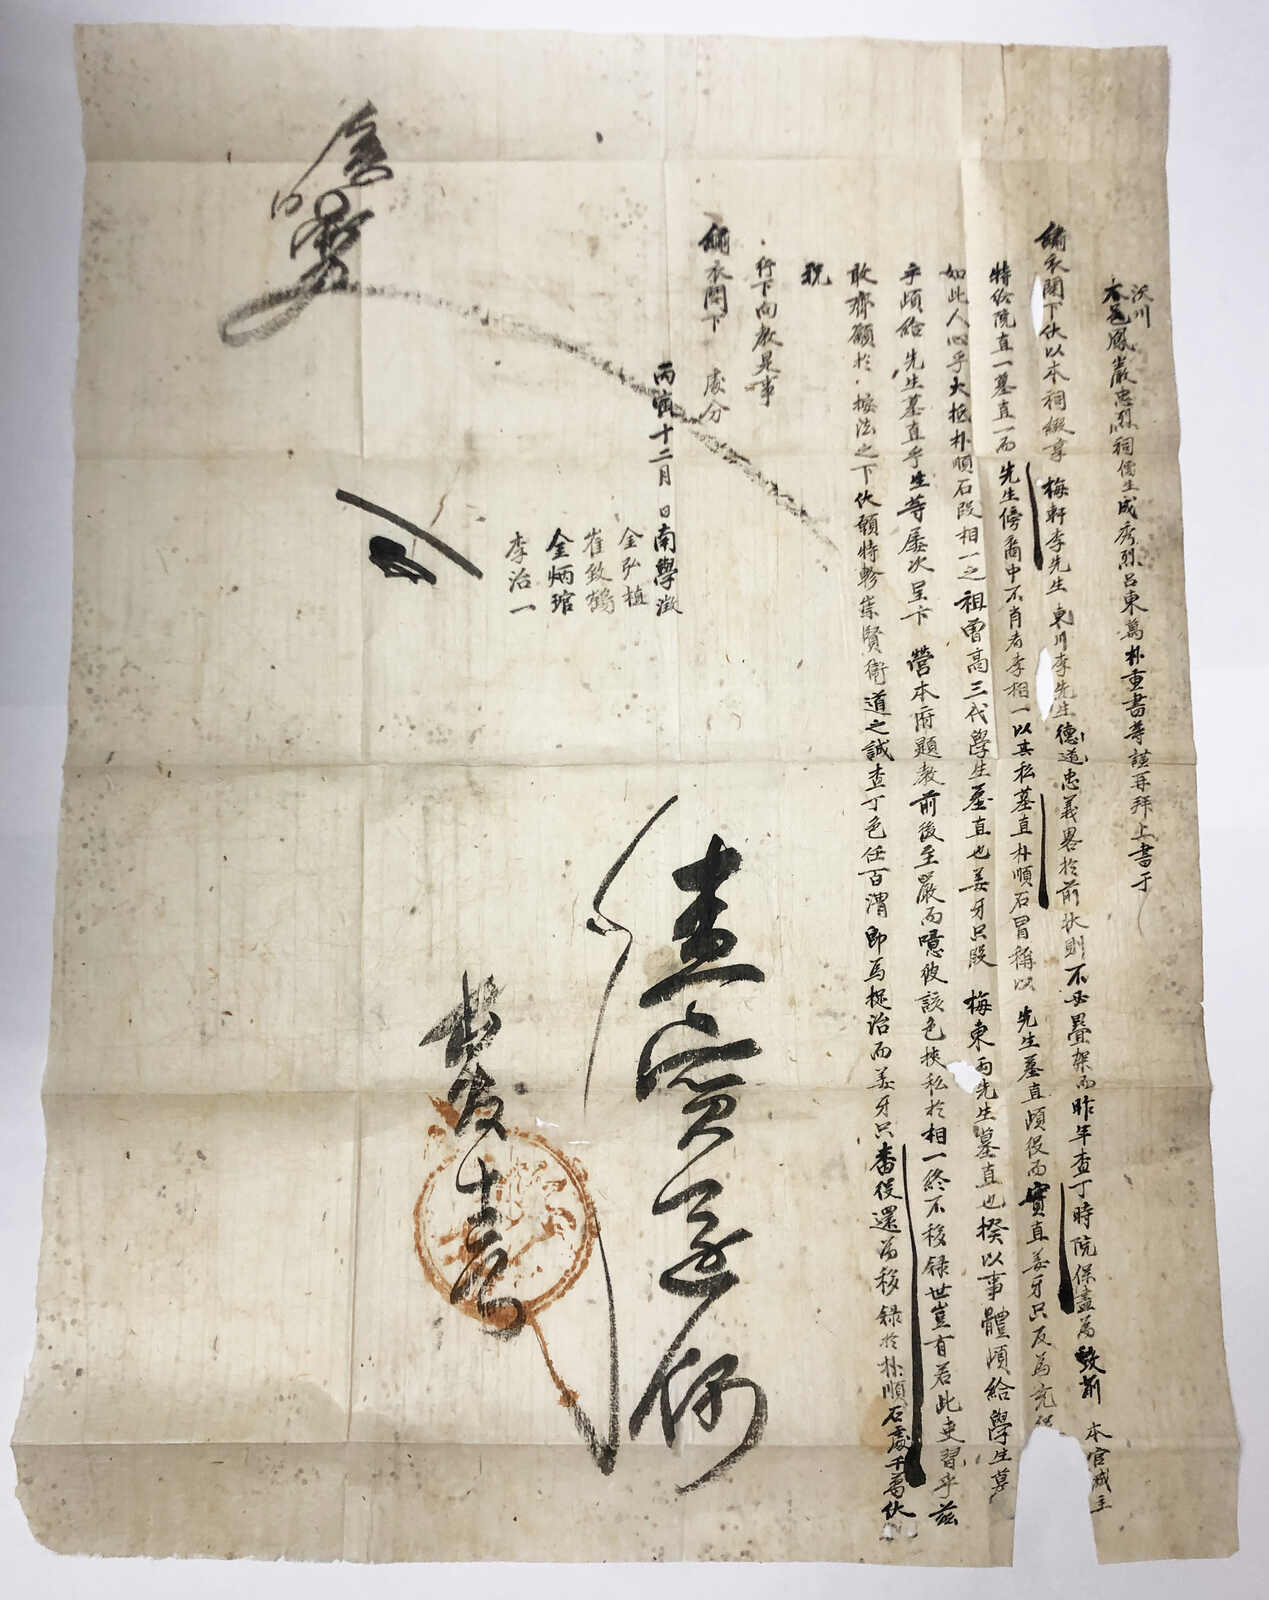 沃川
本邑鳳巖忠烈祠儒生成秀烈呂東萬朴重書等謹再拜上書于
繡衣閤下伏以本祠綴享 梅軒李先生 東川李先生德道忠義畧於前狀則不必疊架而昨年查丁時院保盡爲
本官城主
特給院直一墓直一而 先生傍裔中不肖者李相一以其私墓直朴順石冒稱以 先生墓直頉役而實直姜牙只反爲充保
如此人心乎大抵朴順石段相一之祖曾高三代學生墓直也姜牙只段 梅東兩先生墓直也揆以事體頉給學生墓
乎頉給 先生墓直乎生等屢次呈卞 營本府題教前後至嚴而噫彼該色挾私於相一終不移錄世豈有若此吏習乎茲
敢齊籲於 按法之下伏願特軫崇賢衛道之誠查丁色任百渭卽爲捉治而姜牙只番役還爲移錄於朴順石處千萬伏
祝
行下向教是事
繡衣閤下 處分
丙寅十二月 日南學澂
金弘植
崔致鶴
金炳琯
李治一
查實
十二日